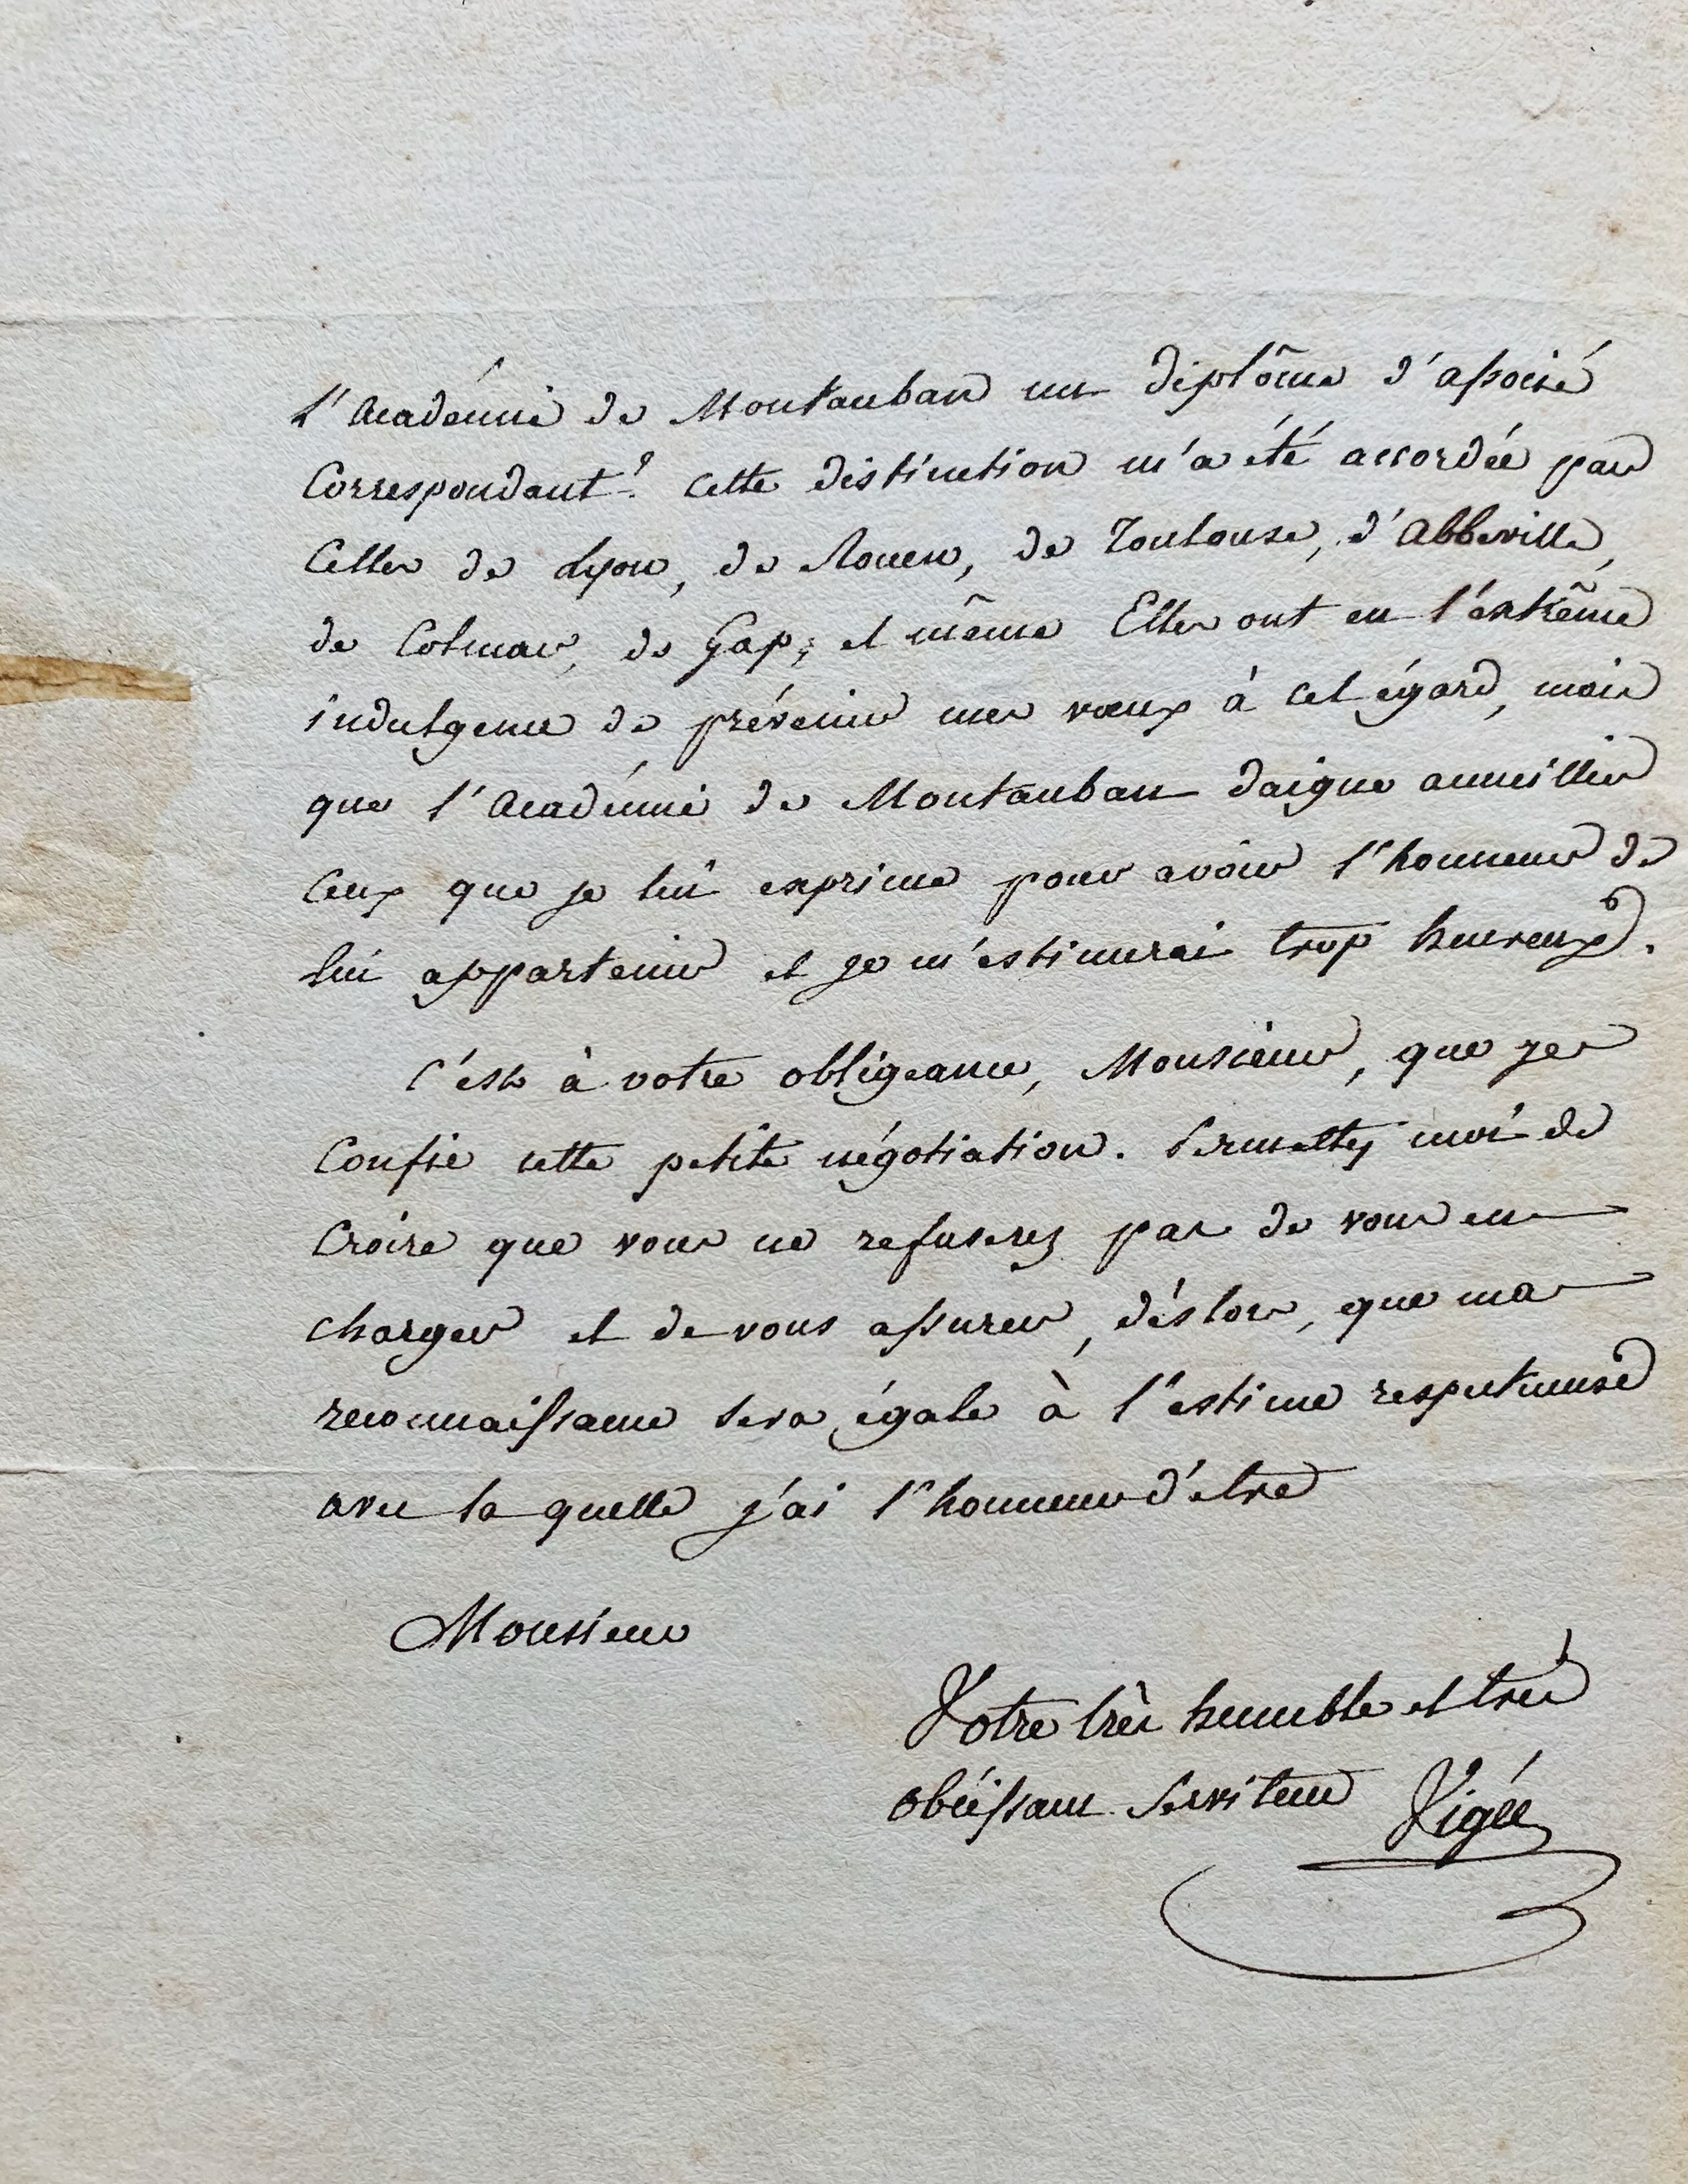 l'académie de Montauban un diplôme d'associé
Correspondant? cette distinction m'a été accordée par
Celles de Lyon, de Rouen, de Toulouse, d'abbeville,
de Colmar, de Gap, et même Elles ont eu l'extrême
indulgence de prévenir mes vœux à cet égard, mais
que l'académie de Montauban daigne accueillir
Ceux que je lui exprime pour avoir l'honneur de
lui appartenir et je m'estimerai trop heureux.
C'est à votre obligeance, Monsieur, que je
Confie cette petite négotiation. Permettez moi de
Croire que vous ne refuserez pas de vous en
charger et de vous assurer, dèslors, que ma
reconnaissance sera égale à l'estime respectueuse
avec la quelle j'ai l'honneur d'etre
Monsieur
Votre très humble et très
obéissant Serviteur Vigée